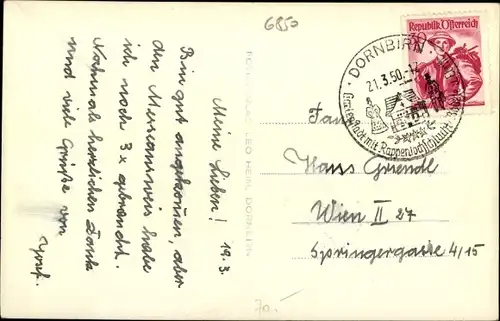 6850
19.3.
Meine Lieben!
Bin gut angekommen, aber
den habe
ich noch 3x gebraucht.
Nochmals herzlichen Dank
und viele Grüße von
Josef.
LEO HEIM, DORNBIRN
Republik Österreich
DORNBIRN
21.3.50
Gartenstadt mit Rappenlochschlucht
Fam
Hans Gruendl
Wien II 27
Springergasse 4/15
70.-